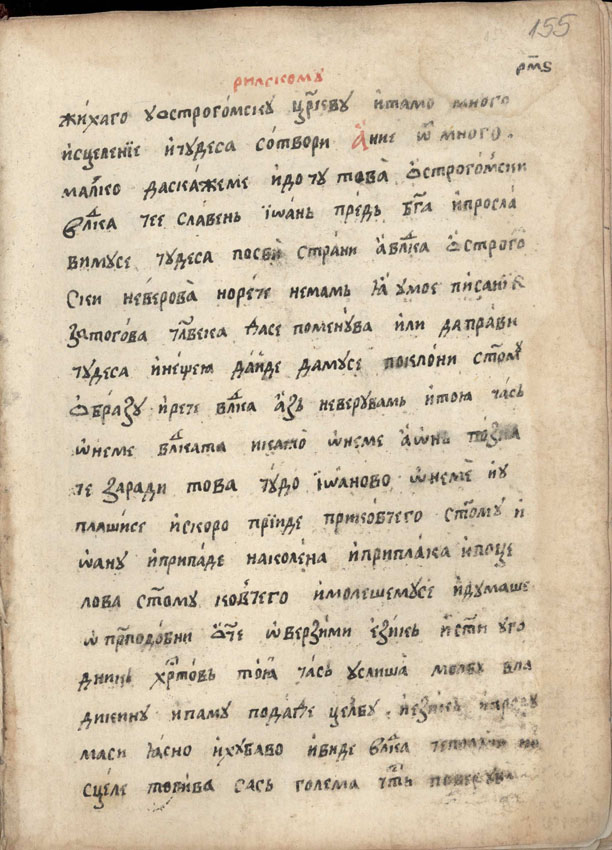 155
рм҃ѕ
рилскому
жихаго уѻстрогомску црⷦ҇ву итамо много
исцеленїе ичудеса сотвори а҆ние ѿ много
малко даскажеме идоту това ѻстрогомски
влⷣка чее славень їѡань предь бг҃а ипросла
вимусе чудеса посви страни авлⷣка ѻстрого
ски неверова норече немамь ꙗ умое писание
затогова чл҃века дасе поменува или даправи
чудеса инещею дайде дамусе поклони ст҃ому
ѻбразу ирече влⷣка азь неверувамь итою чась
ѡнеме влⷣката икато ѡнеме аѡнь позна
че заради това чудо їѡаново ѡнеме иу
плашисе искоро прїиде прикѡвчего ст҃ому и
ѡану иприпаде наколена ириплака ипоце
лова ст҃ому ковчего имолешемусе идумаше
ѡ прⷣподобни ѿче ѿверзими езикь исти уго
дникь хрⷭ҇товь тоꙗ чась услиша молбу вла
дикину ипаму подаде целбу иезикь
маси ꙗсно ихубаво ивиде влⷣка
сцеле тогива сась голема чⷭ҇ть